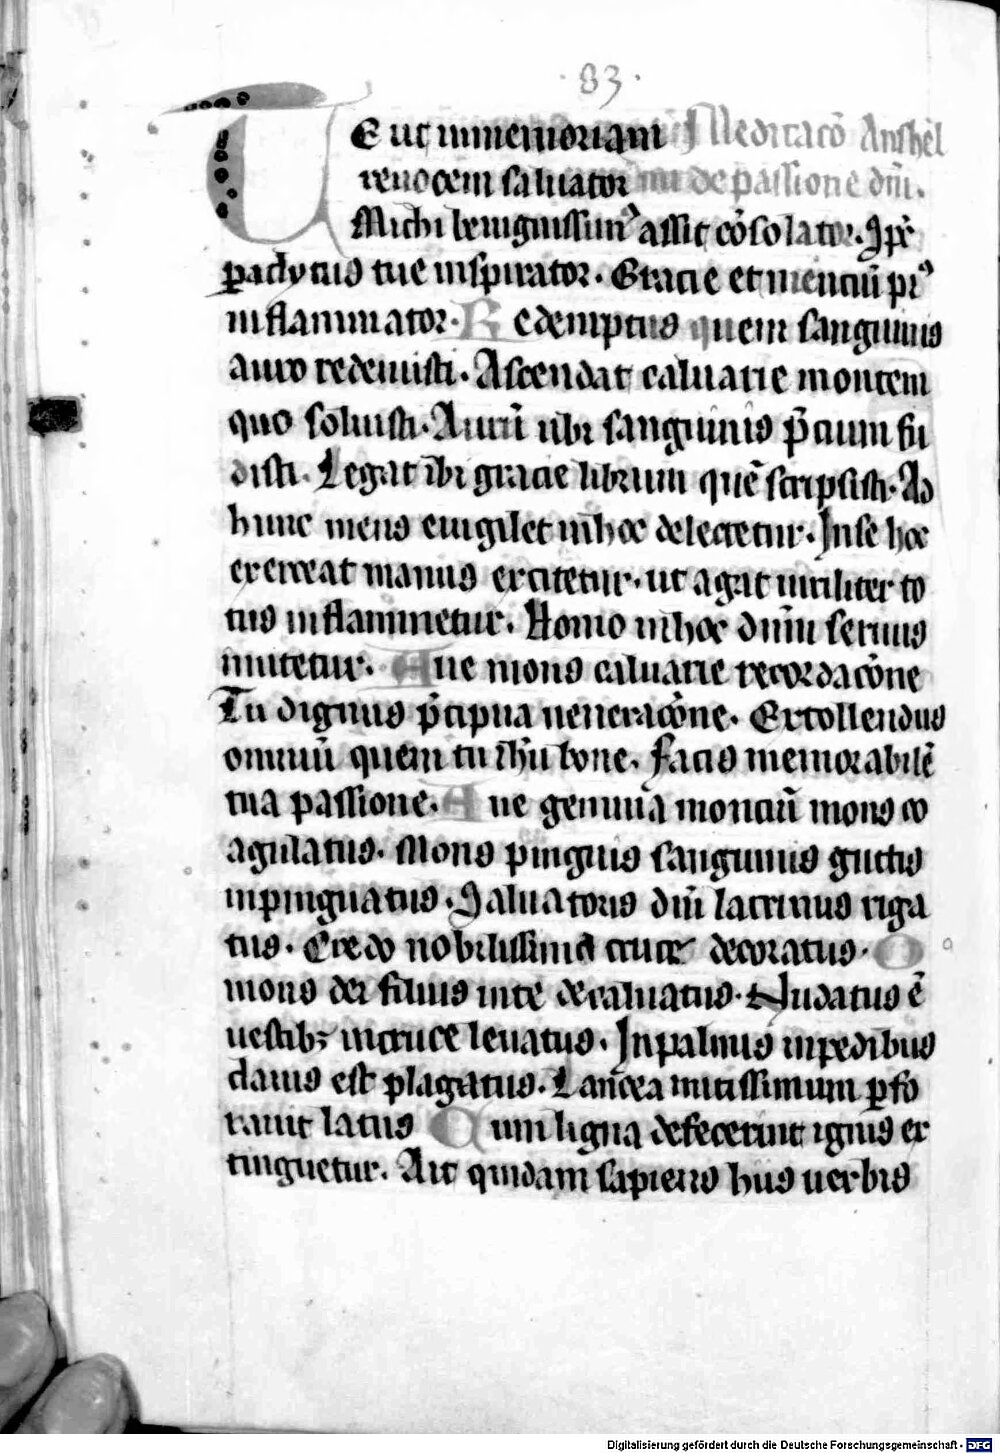 ·83·
Te ut in memoriam Meditacō Anshel
reuocem saluator mi de passione dn̄i.
Michi benignissim᷒ assit cōsolator. Ip̄e
ꝑaclytus tue inspirator. Gracie et menciū pi᷒
inflammator. Redemptus quem sanguinis
auro redemisti. Ascendat caluarie montem
quo soluisti. Aurū ubi sanguinis p̄cium fu
disti. Legat ibi gracie librum quē scripsisti. Ad
hunc mens euigilet in hoc delectetur. In se hoc
exerceat manus excitetur. ut agat uiriliter to
tus inflammetur. Homo in hoc dn̄m seruus
mutetur. Aue mons caluarie recordacōne
Tu dignus p̄cipua ueneracōne. Extollendus
omniū quem tu ih̄u bone. Facis memorabilē
tua passione. Aue gemma monciū mons co
agulatus. Mons pinguis sanguinis guttis
inpinguatus. Saluatoris dn̄i lacrimis riga
tus. Credo nobilissima cruce decoratus. O
mons dei filius in te decaluatus. Nudatus ē
uestibꝫ in cruce leuatus. In palmis in pedibus
clauis est plagatus. Lancea mitissimum ꝑfo
rauit latus Cum ligna defecerint ignis ex
tinguetur. Ait quidam sapiens hiis uerbis
Digitalisierung gefördert durch die Deutsche Forschungsgemeinschaft - DFG